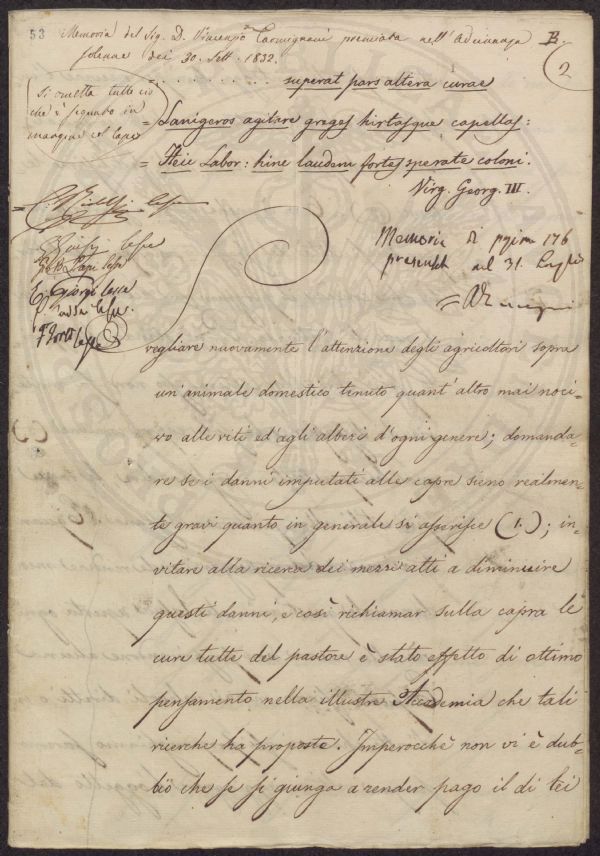 53 Memoria del Sig. D. Vincenzo Carmignani premiata nell'Adunanza B.
solenne dei 30. Sett. 1832. 2
. . . . . . . . . superat pars altera curae
Si ometta tutto ciò
che è segnato in
margine col lapis
= Lanigeros agitare greges hirtasque capellas:
= Heic Labor: hinc laudem fortes sperate coloni.
Virg. Georg. III.
Memoria di pagine 176
presentata nel 31. Luglio
vegliare nuovamente l'attenzione degli agricoltori sopra
un'animale domestico tenuto quant'altro mai noci-
vo alle viti ed'agli alberi d'ogni genere; domanda-
re se i danni imputati alle capre sieno realmen-
te gravi quanto in generale si asserisce (1.); in-
vitare alla ricerca dei mezzi atti a diminuire
questi danni, e così richiamar sulla capra le
cure tutte del pastore è stato effetto di ottimo
pensamento nella illustre Accademia che tali
ricerche ha proposte. Imperocchè non vi è dub-
bio che se si giunga a render pago il di lei